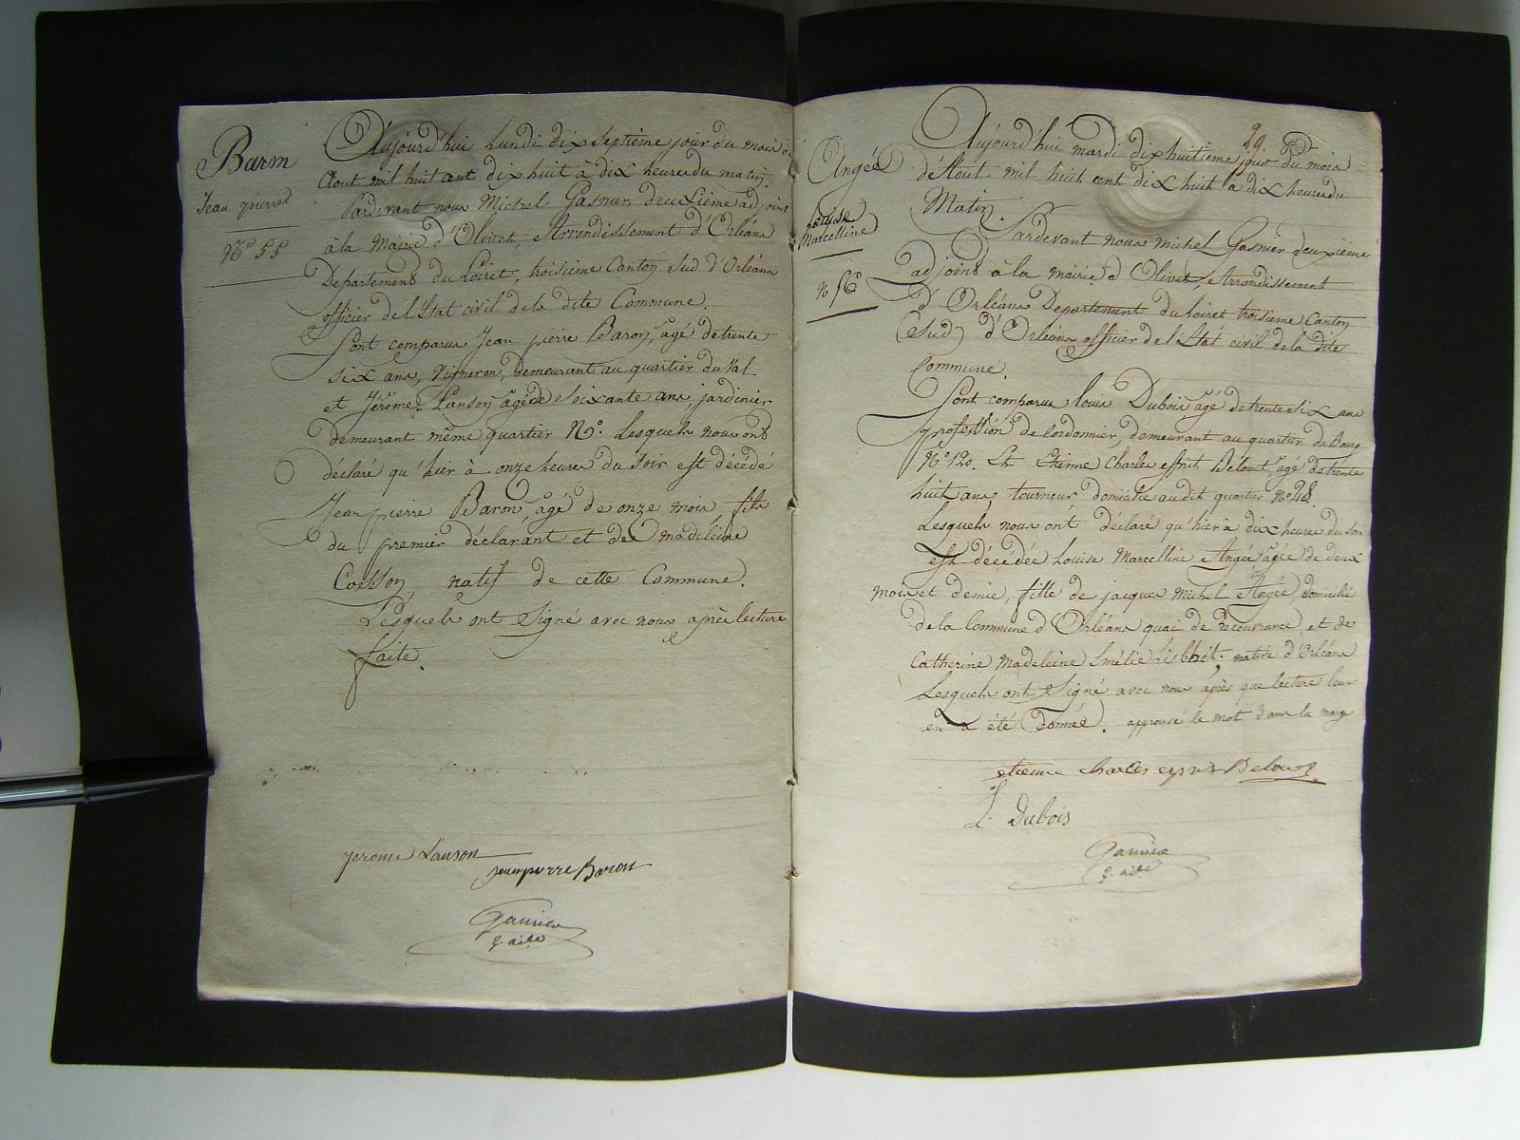 Baron
Jean pierre
N.º 55
Aujourd'hui Lundi dix septième jour du mois d
Aout mil huit cent dix huit à dix heures du matin.
Pardevant nous Michel Garnier deuxième adjoint
à la Mairie d'Olivet, Arrondissement d'Orléans
Departement du Loiret, troisième Canton Sud d'Orléans
officier de l'Etat civil de la dite Commune.
Sont comparus Jean pierre Baron, agé de trente
six ans, Vigneron, demeurant au quartier du Val
et Jérôme Lanson agé de Soixante ans jardinier
demeurant même quartier N.º Lesquels nous ont
déclaré qu'hier à onze heures du soir est décédé
Jean pierre Baron agé de onze mois fils
du premier déclarant et de madeleine
natif de cette Commune.
Lesquels ont Signé avec nous après lecture
faite.
jerome Lanson
jean pierre Baron
Garnier
99
Angéé
Louise
Marcelline
N 56
Aujourd'hui mardi dix huitieme jour du mois
d'Aout mil huit cent dix huit à dix heures du
Matin.
Pardevant nous michel Garnier deuxième
adjoint à la mairie d'Olivet, Arrondissement
d'Orléans Departement du Loiret troisieme Canton
(Sud) d'Orléans officier de l'Etat civil de la dite
Commune.
Sont comparus louis Dubois agé de trente Six ans
profession de Cordonnier, demeurant au quartier du Bourg
Nº 120. Et Etienne Charles esprit Beloux agé de trente
huit ans, tourneur domicilié au dit quartier nº 28.
Lesquels nous ont déclaré qu'hier à dix heures du soir
est décédée Louise Marcelline Angéé agée de deux
mois et demie, fille de jacques Michel Angéé domicilié
de la Commune d'Orléans quai de recouvrance et de
Catherine Madeleine native d'Orléans
Lesquels ont Signé avec nous après que lecture leur
en a été donnée. approuvé le mot dans la marge
etienne charles esprit Beloux
L. Dubois
Garnier